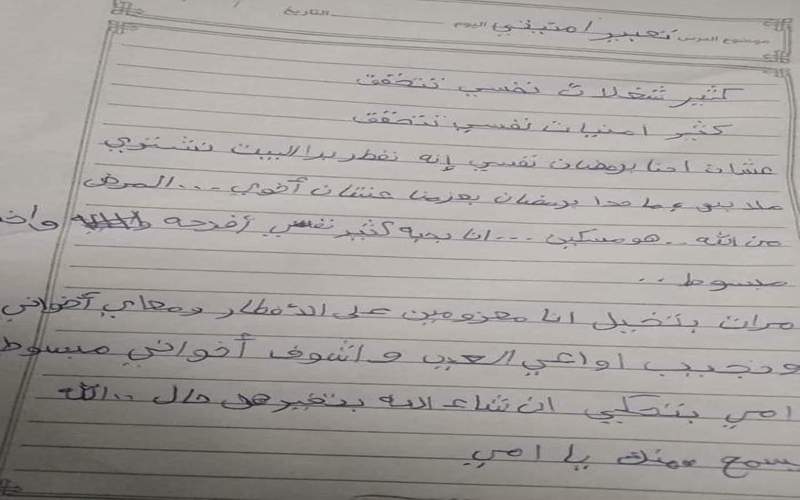 موضوع الدرس تعبير امتيتني اليوم التاريخ
كثير شغلات نفسي تتحقق
كثير امنيات نفسي تتحقق
عشان احنا برمضان نفسي إنه نفطر برا البيت نشتري
ملابس عما حدا برمضان بعزمنا عشان أخوي ... المرض
من الله .. هو مسكين ... انا بحبه كثير نفسي أفرحه واخ
مبسوط ..
مرات بتخيل انا معزومين على الأفطار ومعاي أخواني
ونجيب اواعي العيد واشوف أخواني مبسوط
امي بتحكي ان شاء الله بتغير هل حال .. الله
يسمع منك يا امي